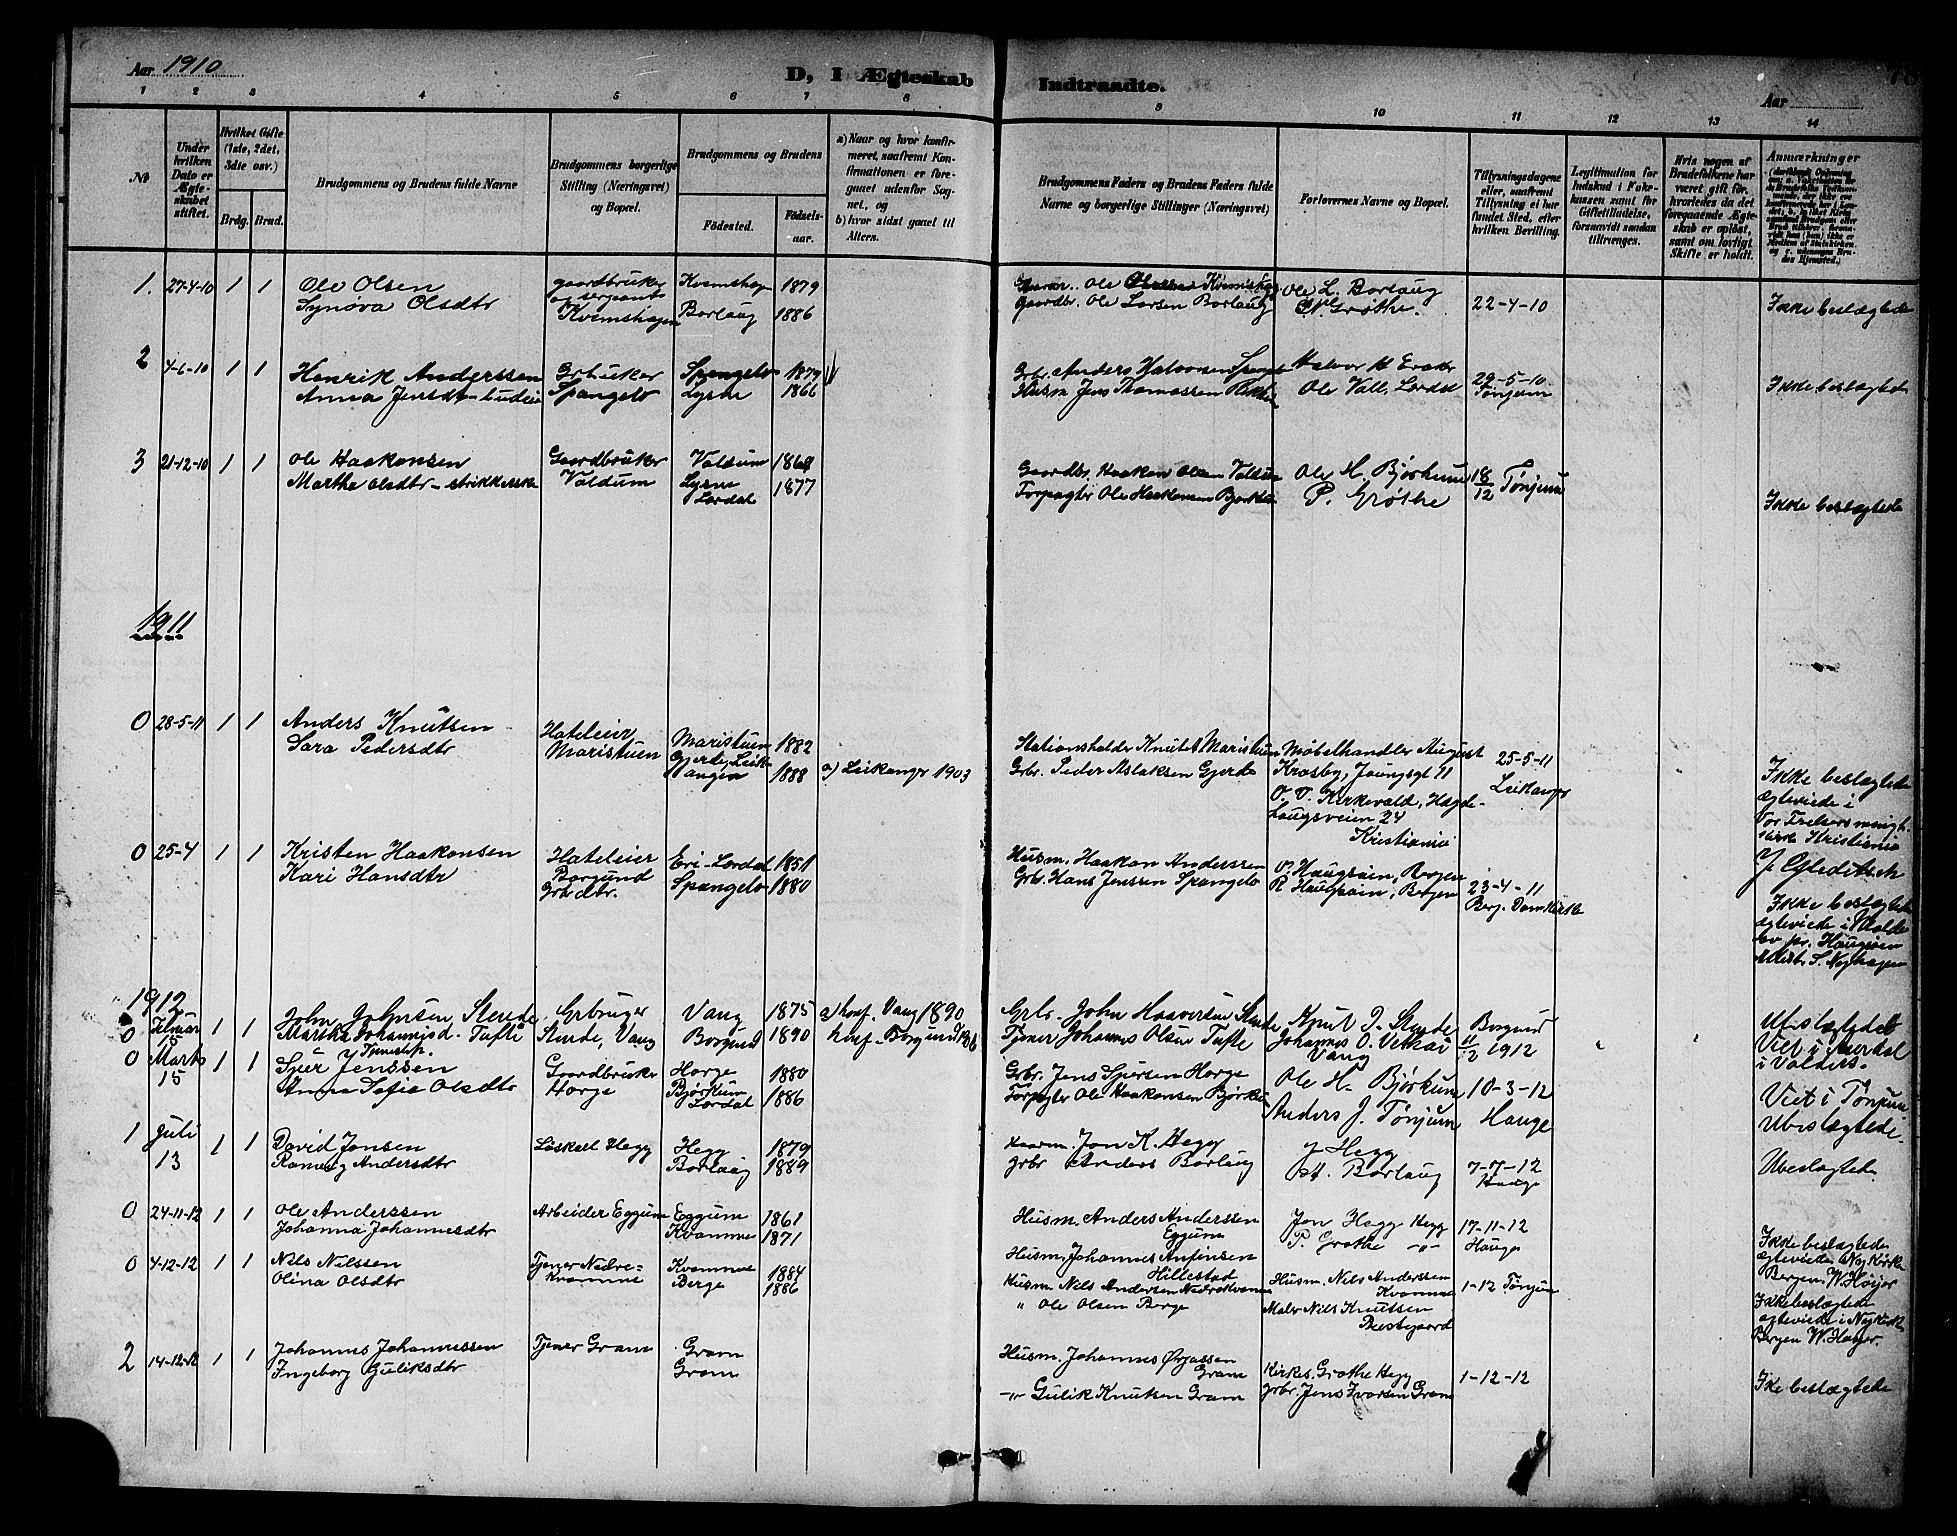 Aar 1910
D, I Ægteskab Indtraadte.
Aar
1 2 3 4 5 6 7 8 9 10 11 12 13 14
No
Under hvilken Dato er Ægteskabet stiftet.
Hvilket Gifte (1ste, 2det, 3dte osv.)
Brdg. Brud.
Brudgommens og Brudens fulde Navne
Brudgommens borgerlige Stilling (Næringsvei) og Bopæl.
Brudgommens og Brudens
Födested.
Födselsaar.
a) Naar og hvor konfirmeret, saafremt Konfirmationen er foregaaet udenfor Sognet, og
b) hvor sidst gaaet til Alters.
Brudgommens Faders og Brudens Faders fulde Navne og borgerlige Stillinger (Næringsvei)
Forlovernes Navne og Bopæl.
Tillysningsdagene eller, saafremt Tillysning ei har fundet Sted, efter hvilken Bevilling.
Legitimation for Indskud i Enkekassen samt for Giftetilladelse, forsaavidt saadan tiltrænges.
Hvis nogen af Brudefolkene har været gift för, hvorledes da det foregaaende Ægteskab er oplöst, samt om lovligt Skifte er holdt.
Anmærkninger
1. 27-4-10 1 1 Ole Olsen
Synøva Olsdtr
gaardbruker og sergeant Kvemshagen
Kvemshagen 1879
Borlaug 1886
Ole Kvemshag
gaardbr. Ole Larsen Borlaug
Ole L. Borlaug
Grøthe.
22-4-10
Ikke beslægtede
2 4-6-10 1 1 Henrik Anderssen
Anna Jensdtr
Grbruker Spangelo
Spangelo 1879
Lysne 1866
Grb. Anders Halvorsen Spangelo
Husm Jens Thomassen
Halvor H
Ole Vall, Lærdal
29-5-10 Tønjum
Ikke beslægtede
3 21-12-10 1 1 Ole Haakonsen
Marthe Olsdtr - strikkerske
Gaardbruker Voldum
Voldum
Lysne Lærdal 1877
Gaardbr. Haakon Olsen Voldum
Forpagter Ole Haakonsen Bjørkum
Ole H. Bjørkum
P. Grøthe
18/12 Tønjum
Ikke beslægtede
1911
0 28-5-11 1 1 Anders Knutsen
Sara Pedersdtr
Hoteleier Maristuen
Maristuen 1882
Gjerde, Leikanger 1888
a) Leikanger 1903
Stationsholder Knut Maristuen
Grb. Peder Aslaksen Gjerde
Møbelhandler August Krosby, Youngsgt 11
O. V. Kirkevold, Hegdehaugsveien 24
Kristiania
25-5-11 Leikanger
Ikke beslægtede
ægteviede i
Vor Frelsers menigh.
kirke Kristiania
J. Gleditsch
0 25-4 1 1 Kristen Haakonsen
Kari Hansdtr
Hoteleier Borgund
Grbr.dtr.
Eri-Lærdal 1851
Spangelo 1880
Husm. Haakon Anderssen
Grb. Hans Jenssen Spangelo
O. Haugsøen, Bergen
R Haugsøen, Bergen
23-4-11
Berg. Domkirke
Ikke beslægtede
ægteviede i
1912
0 Februar 15 1 1 John Johnsen Stende
Martha Johannisd. Tufte
Grbruger
Stende, Vang
Vang 1875
Borgund 1890
Konf. Vang 1890
Konf. Borgund
Grb. John Haavorsen Stende
Tjener Johannes Olsen Tufte
Knut J. Stende
Johannes O.
Vang
Borgund
11/2 1912
Ubeslægtet
Viet i
i Valders.
0 Marts 15 1 1 Sjur Jenssen
Anna Sofie Olsdtr
Gaardbruker
Horge
Horge 1880
Bjørkum Lærdal 1886
Grbr. Jens Sjursen Horge
Forpagter Ole Haakonsen Bjørkum
Ole H. Bjørkum
Anders J. Tønjum
10-3-12
Hauge
Viet i Tønjum
Ubeslægtede
1 Juli 13 1 1 David Jonsen
Andersdtr
Løskarl Hegg
Hegg 1879
Borlaug 1889
Jon K. Hegg
grbr Anders Borlaug
J Hegg
A. Borlaug
7-7-12
Hauge
Ubeslægtede
0 24-11-12 1 1 Ole Anderssen
Johanna Johannesdtr
Arbeider Eggum
Eggum 1861
Kvamme 1871
Husm. Anders Anderssen
Eggum
Husm. Johannes Anfinsen
Hillestad
Jon Hegg Hegg
P. Grøthe -"-
17-11-12
Hauge
Ikke beslægtede
ægteviede i Nykirke
Bergen. W. Høyer
0 4-12-12 1 1 Nils Nilssen
Olina Olsdtr
Tjener Nedre-
kvamme
Kvamme 1884
Berge 1886
Husm Nils Andersen Nedrekvamme
" Ole Olsen Berge
Husm. Nils Anderssen
Kvamme
Maler Nils Knutsen
1-12 Tønjum
Ikke beslægtede
ægteviede i Nykirke
Bergen W. Høyer.
2 14-12-12 1 1 Johannes Johannessen
Ingeborg Guliksdtr
Tjener Gram
Gram
Gram
Husm. Johannes
Gram
-"- Gulik Knutsen Gram
Kirkes. Grøthe Hegg
grbr. Jens Ivarsen Gram
1-12-12
Ikke beslægtede